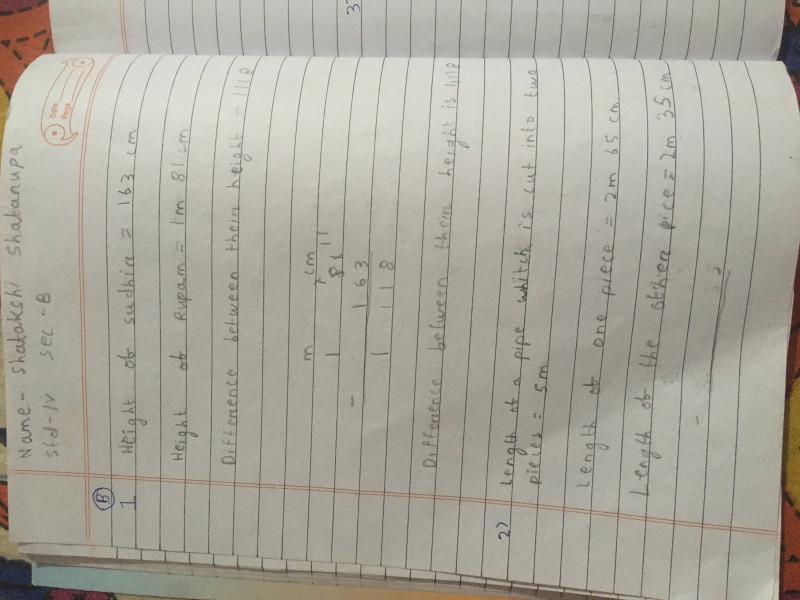 Name- Shatakshi Shatarupa
Std-IV Sec-B
Date
Page
B
1 Height of sudhir = 163 cm
Height of Rupam = 1m 81 cm
Difference between their height = 1118
m cm
1 7 11
81
- 163
1 118
Difference between their height is 1118
2) Length of a pipe whitch is cut into two
pieces = 5m
Length of one piece = 2m 65 cm
Length of the othere piece = 2m 35 cm
-
3